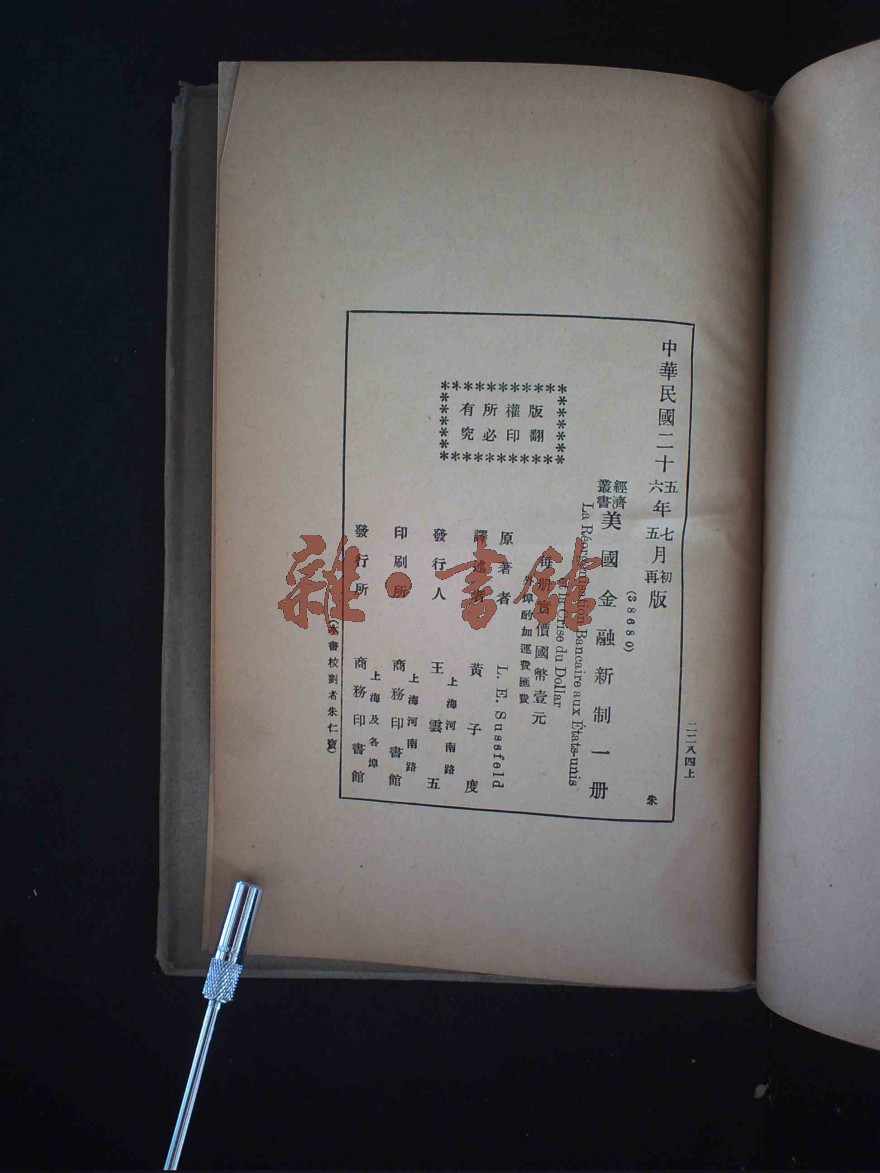 中華民國二十五年七月初版
六 五 再
(38680)
經濟叢書 美國金融新制一册
La Réorganisation Bancaire aux États-unis
et la Crise du Dollar
每册實價國幣壹元
外埠酌加運費匯費
原著者 L. E. Sussfeld
譯述者 黃子度
發行人 王雲五
上海河南路
印刷所 商務印書館
上海河南路
發行所 商務印書館
上海及各埠
(本書校對者朱仁寶)
版權所有
翻印必究
二二八四上
朱
雜·書館